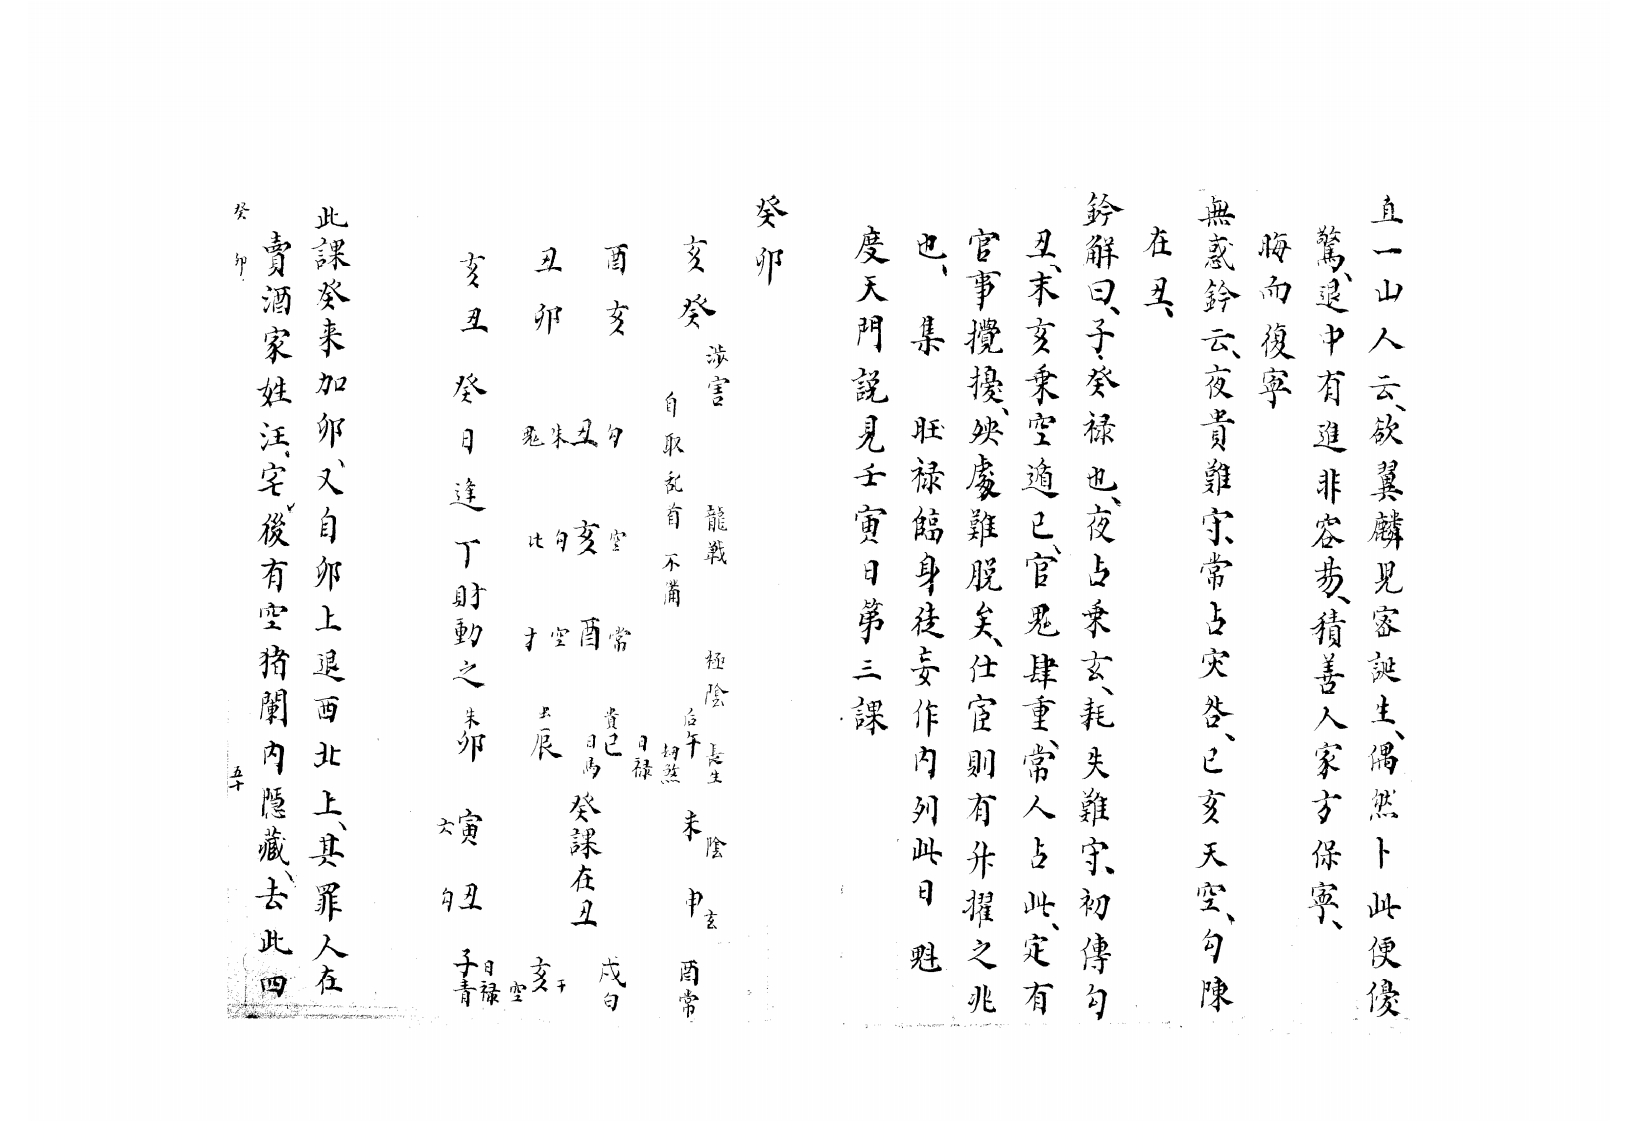 直一山人云、欲翼麟見客誕生、偶然卜此便優
驚、退中有進非容易、積善人家方保寧、
晦而復寧
無惑鈐云、夜貴難守、常占灾咎、巳亥天空、勾陳
在丑、
鈐解曰、子、癸禄也、夜占乗玄、耗失難守、初傳勾
丑、末亥乗空遁巳、官鬼肆重、常人占此、定有
官事攪擾、殃處難脱矣、仕宦則有升擢之兆
也、集 旺禄臨身徒妄作内列此日 魁
度天門説見壬寅日第三課
癸卯
渉害 龍戰 極陰
亥癸 自取乱首不備
酉亥
丑卯
亥丑
勾丑朱鬼
空亥勾比
常酉空才
癸日逢丁財動之
后午 長生 刼煞
貴巳 日禄 日馬
辰
朱卯
未陰
申玄
酉常
戌勾
亥空 干
子青 日禄
丑勾
寅六
癸課在丑
此課癸来加卯、又自卯上退酉北上、其罪人在
賣酒家姓汪、宅後有空猪闌内隱藏、去此四
癸卯 五十